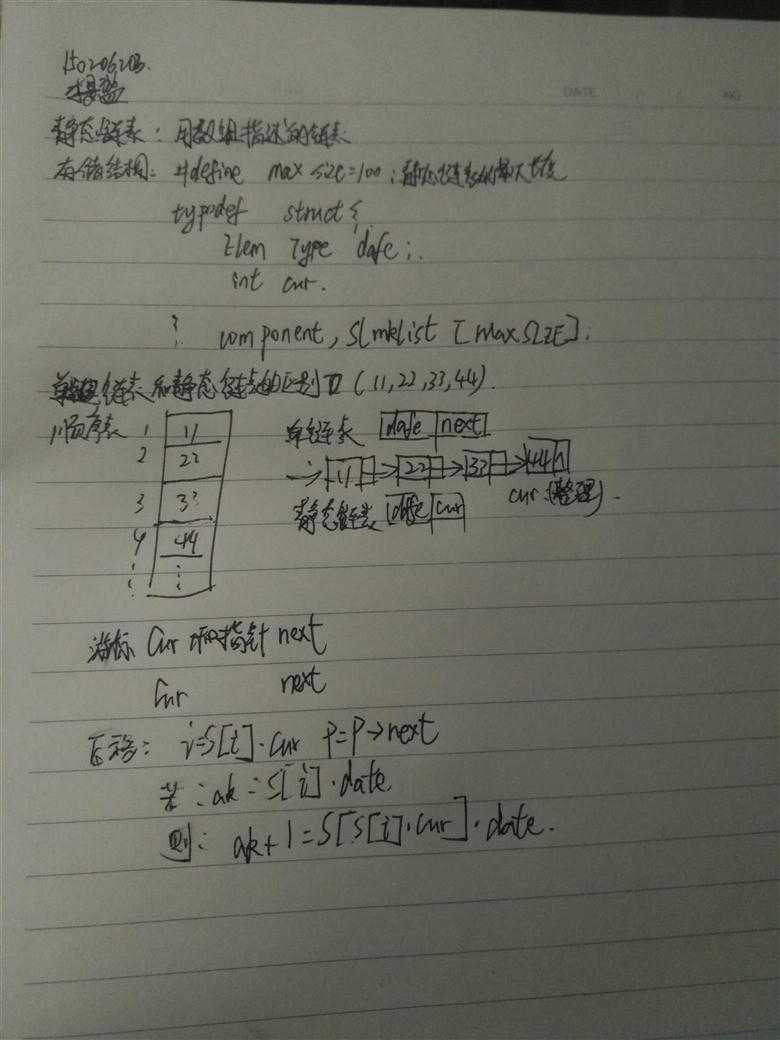 DATE NO.
150206203.
静态链表：用数组描述的链表
存储结构：#define max size=100；静态链表的最大长度
typedef struct{
Elem Type dafe;.
int cur.
} component, Slinklist [max SIZE];
链表和静态链表的区别 (11,22,33,44).
顺序表 1 11 单链表 dafe next
2 22 → 11 → 22 → 33 → 44 ∧
3 33 静态链表 dafe cur cur (整理).
4 44
⋮ ⋮
游标 Cur 和指针 next
Cur next
后移： i=S[i].cur P=P→next
若：ak=S[i].date.
则：ak+1=S[S[i].cur].date.